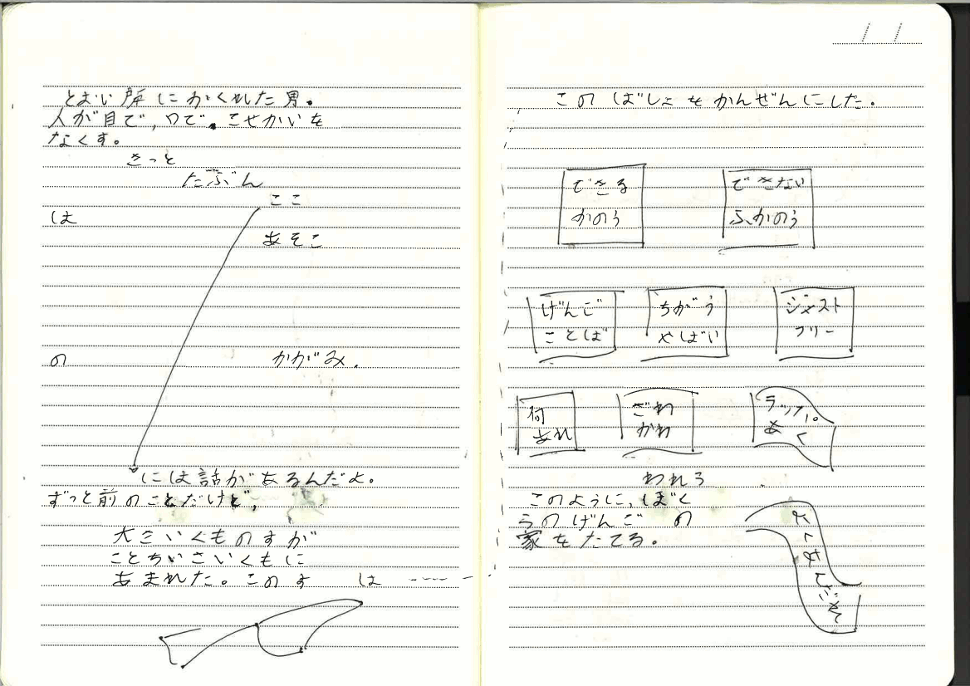 とおい所にかくれた男。
人が目で,口で。こせかいを
なくす。
きっと
たぶん
ここ
は
あそこ
の かがみ.
には話があるんだよ。
ずっと前のことだけど,
大きいくものすが
ことちいさいくもに
あまれた。このす は
このばしょをかんぜんにした.
できる
かのう
できない
ふかのう
げんご
ことば
ちがう
やばい
ジャスト
フリー
何
あれ
ざわ
かわ
われら
このように,ぼく
らのげんご の
家をたてる。